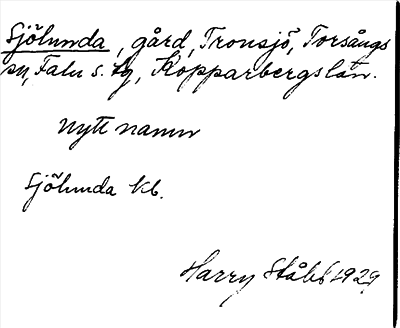 Sjölunda, gård, Tronsjö, Torsångs
sn, Falu s. tg, Kopparbergs län.
nytt namn
Sjölunda kb.
Harry Ståhl 1929